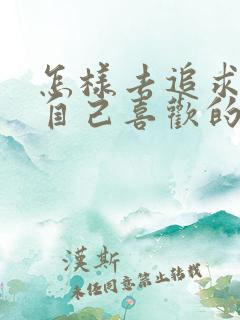 怎樣去追求
自己喜歡的
漢斯
未经同意禁止转载